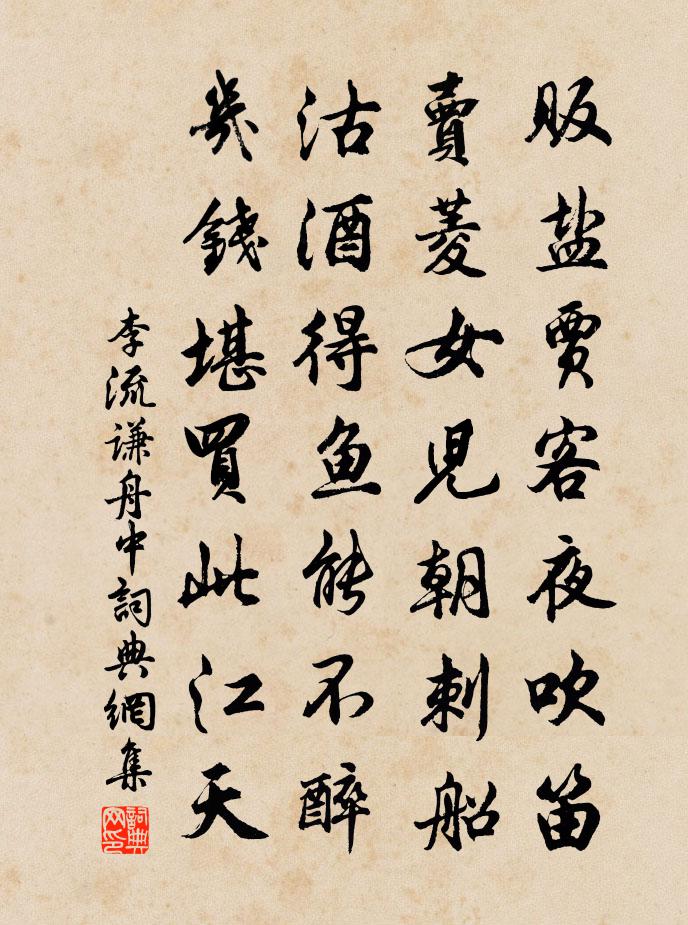 販盐賈客夜吹笛
賣菱女児朝刺船
沽酒得鱼能不醉
幾錢堪買此江天
李流谦舟中詞典網集
詞典网印